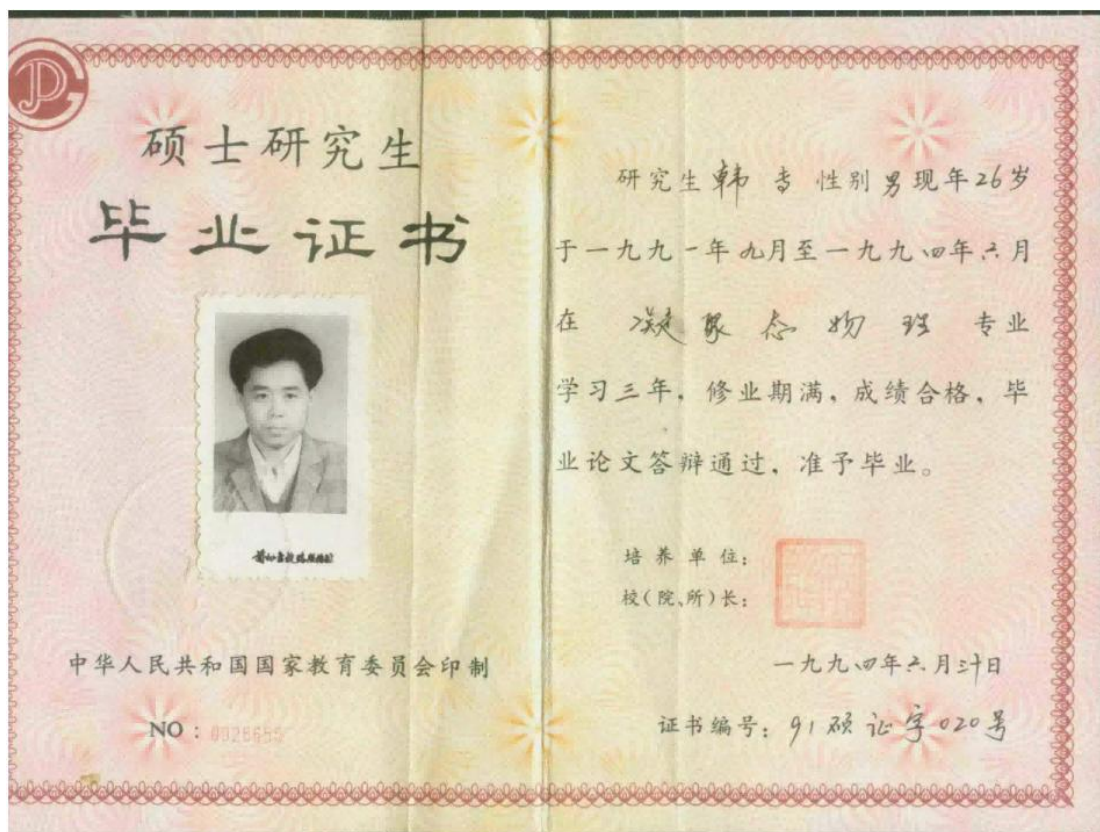 硕士研究生
毕业证书
中华人民共和国国家教育委员会印制
NO:
研究生韩 性别男现年26岁
于一九九一年九月至一九九四年六月
在 凝聚态物理 专业
学习三年，修业期满，成绩合格，毕
业论文答辩通过，准予毕业。
培养单位：
校(院、所)长：
一九九四年六月三十日
证书编号：91硕证字020号